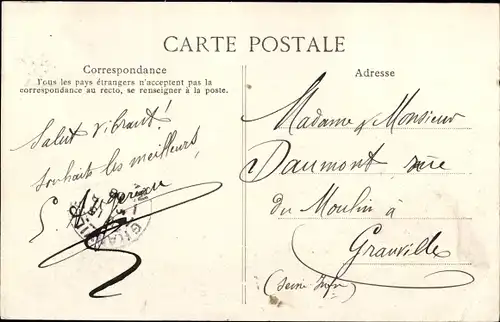 CARTE POSTALE
Correspondance
Tous les pays étrangers n'acceptent pas la
correspondance au recto, se renseigner à la poste.
Salut vibrant!
Souhaits les meilleurs,
Adresse
Madame & Monsieur
Daumont, rue
du Moulin à
Granville
(Seine Infre)